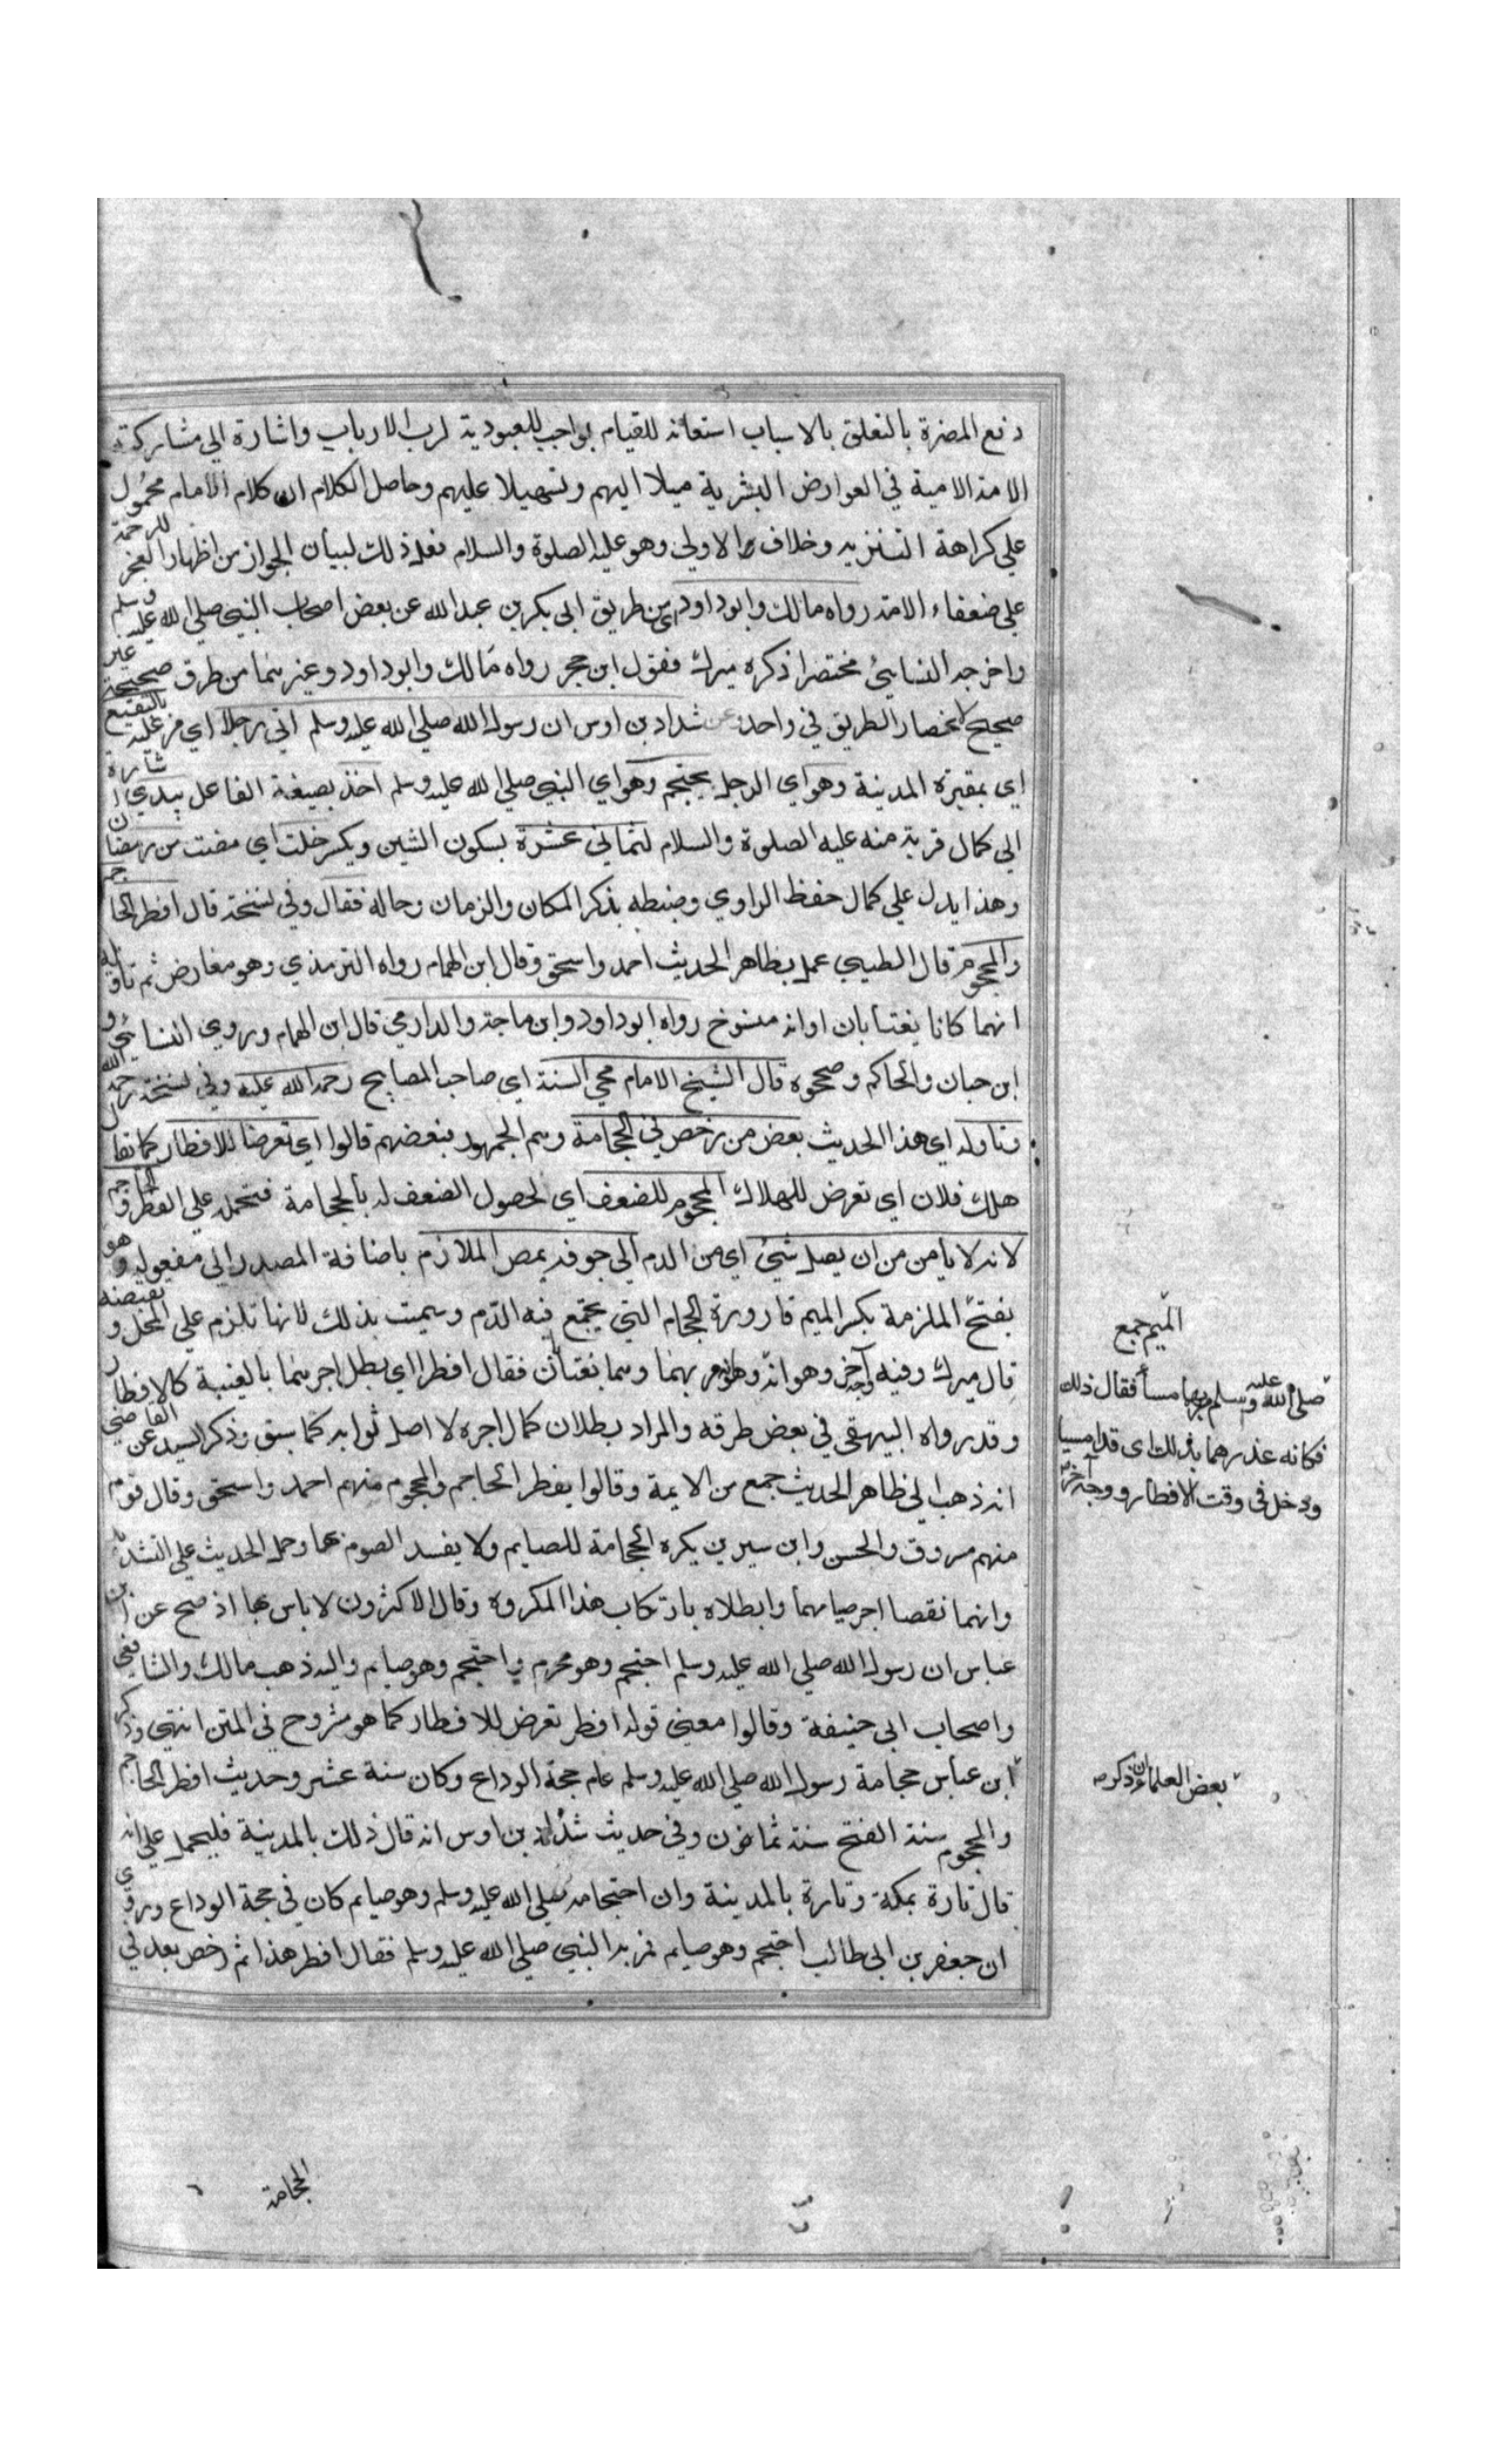 دفع المضرة بالتعلق بالاسباب استعانة للقيام بواجب العبودية لرب الارباب واشارة الي مشاركته
الامة الامية في العوارض البشرية ميلا اليهم وتسهيلا عليهم وحاصل الكلام ان كلام الامام محمول
علي كراهة التنزيه وخلاف الاولي وهو عليه الصلوة والسلام فعل ذلك لبيان الجواز من اظهار العجز للرحمة
علي ضعفاء الامة رواه مالك وابو داود اي من طريق ابي بكر بن عبد الله عن بعض اصحاب النبي صلي الله عليه وسلم
واخرجه النسائي مختصرا ذكره ميرك فقول ابن حجر رواه مالك وابو داود وغيرهما من طرق صحيحة غير
صحيح لانحصار الطريق في واحد وعن شداد بن اوس ان رسول الله صلي الله عليه وسلم اتي رجلا اي مر عليه بالبقيع
اي بمقبرة المدينة وهو اي الرجل يحتجم وهو اي النبي صلي الله عليه وسلم اخذ بصيغة الفاعل بيدي اشارة
الي كمال قربة منه عليه الصلوة والسلام لثماني عشرة بسكون الشين ويكسر خلت اي مضت من رمضان
وهذا يدل علي كمال حفظ الراوي وضبطه بذكر المكان والزمان وحاله فقال وفي نسخة قال افطر الحاجم
والمحجوم قال الطيبي عمل بظاهر الحديث احمد واسحق وقال ابن الهمام رواه الترمذي وهو معارض ثم تاوله
انهما كانا يغتابان او انه منسوخ رواه ابو داود وابن ماجة والدارمي قال ابن الهمام وروي النسائي و
ابن حبان والحاكم وصححوه قال الشيخ الامام محي السنة اي صاحب المصابيح رحمة الله عليه وفي نسخة رحمه الله
وتاوله اي هذا الحديث بعض من رخص في الحجامة وهم الجمهور فبعضهم قالوا اي تعرضا للافطار كما يقال
هلك فلان اي تعرض للهلاك المحجوم للضعف اي لحصول الضعف له بالحجامة فتحمله علي الفطر والحاجم
لانه لا يامن من ان يصل شيئ اي من الدم الي جوفه بمص الملازم باضافة المصدر الي مفعوله وهو
بفتح الملزمة بكسر الميم قارورة الحجام التي يجتمع فيه الدم وسميت بذلك لانها تلزم علي المحل وتقبضه
قال ميرك وفيه وجه آخر وهو انه مر بهما وهما يغتابان فقال افطرا اي بطل اجرهما بالغيبة كالافطار
وقد رواه البيهقي في بعض طرقه والمراد بطلان كمال اجره لا اصل ثوابه كما سبق وذكر السيد عن القاضي
انه ذهب الي ظاهر الحديث جمع من الايمة وقالوا يفطر الحاجم والمحجوم منهم احمد واسحق وقال قوم
منهم مسروق والحسن وابن سيرين يكره الحجامة للصايم ولا يفسد الصوم بها وحمل الحديث علي التشديد
وانهما نقصا اجر صيامهما وابطلاه بارتكاب هذا المكروه وقال الاكثرون لا باس بها اذ صح عن ابن
عباس ان رسول الله صلي الله عليه وسلم احتجم وهو محرم واحتجم وهو صايم واليه ذهب مالك والشافعي
واصحاب ابي حنيفة وقالوا معني قوله افطر تعرض للافطار كما هو مشروح في المتن انتهي وذكر
ابن عباس حجامة رسول الله صلي الله عليه وسلم عام حجة الوداع وكان سنة عشر وحديث افطر الحاجم
والمحجوم سنة الفتح سنة ثمان وفي حديث شداد بن اوس انه قال ذلك بالمدينة فليحمل علي انه
قال تارة بمكة وتارة بالمدينة وان احتجامه صلي الله عليه وسلم وهو صايم كان في حجة الوداع وروي
ان جعفر بن ابي طالب احتجم وهو صايم فمر به النبي صلي الله عليه وسلم فقال افطر هذا ثم رخص بعد في
الميم جمع
صلى الله عليه وسلم مر بهما مساء فقال ذلك
فكانه عذرهما بذلك اى قد امسيا
ودخل فى وقت الافطار ووجه آخر
بعض العلماء ان ذكر
الحجامة